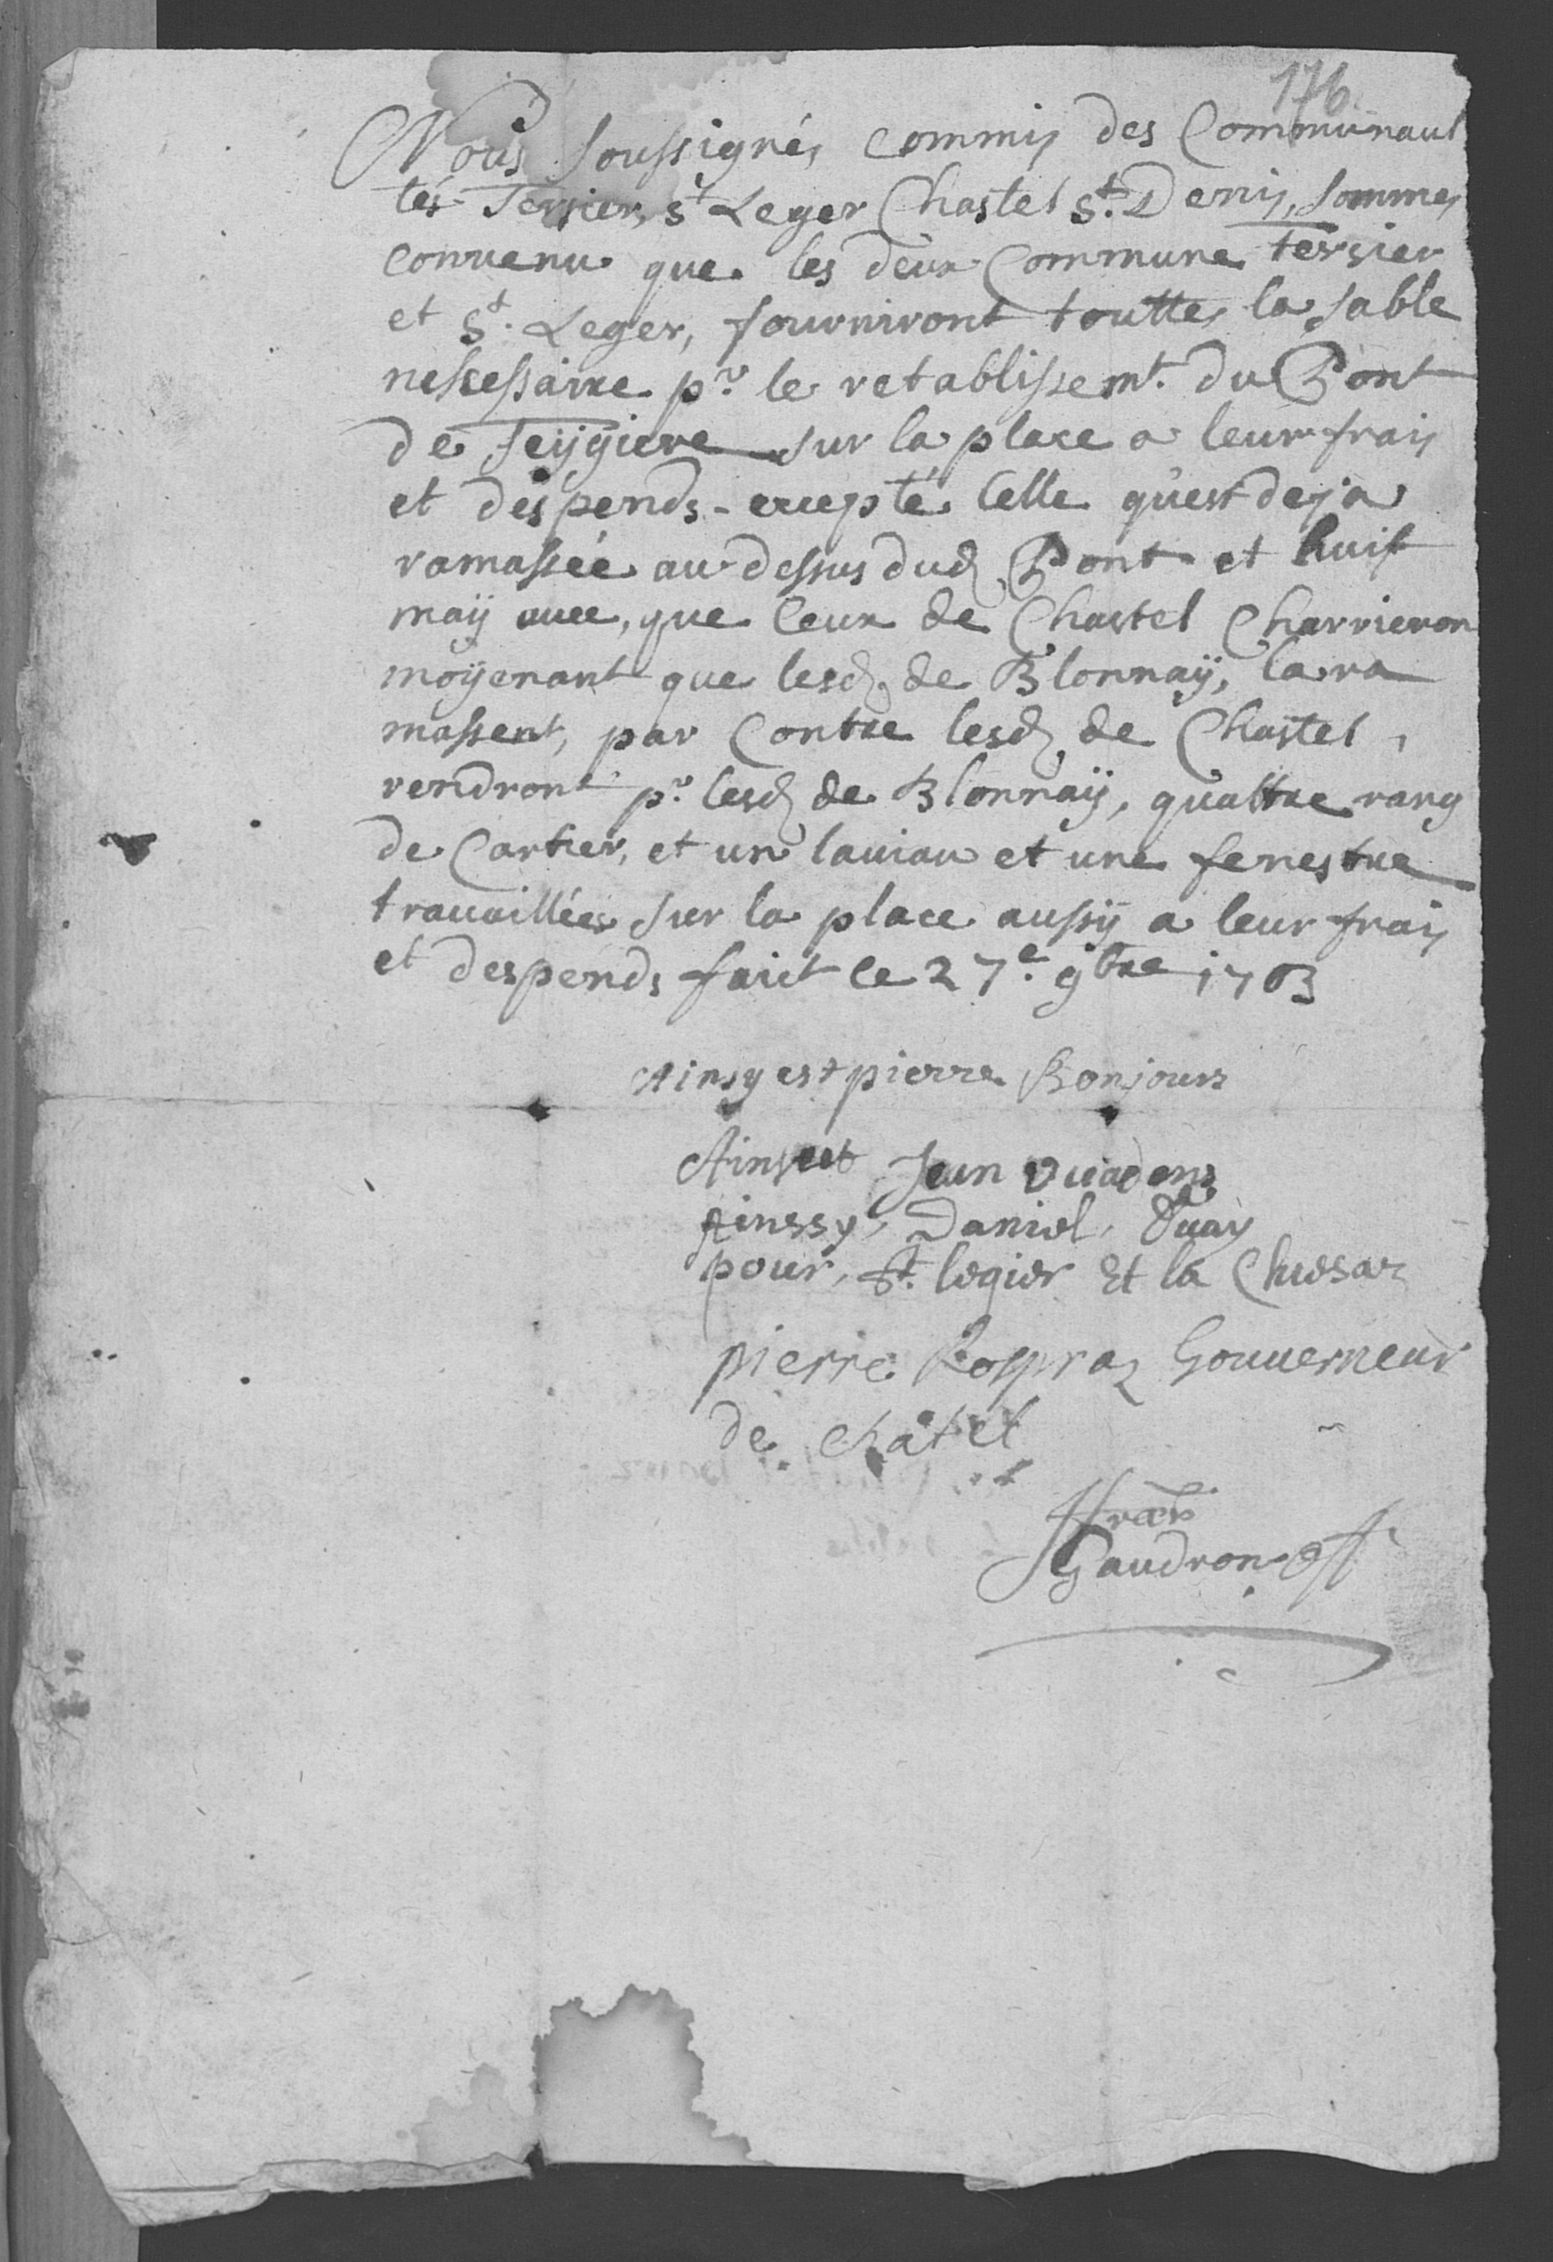 176
Nous soussignés commis des Communaul
tés Tersier, St Leger Chastel St. Denis, sommes
convenu que les deux Commune Tersier
et St. Leger, fourniront toutte la sable
nessessairre pr le retablissemt. du Pont
de Feÿgiere sur la place a leur frais
et despends - excepté Celle qu'est deja
ramassée au dessus dud Pont et huist
maÿ avec, que Ceux de Chastel Charrieron
moÿenant que lesd de Blonnaÿ, la ra
massent, par Contre lesd de Chastel,
rendront pr. lesd de Blonnaÿ, quattre rang
de Cartier, et un lauiau et une fenestre
trauaillées sur la place aussÿ a leur frais
et despends faict le 27e. 9bre 1703
Ainsy est pierre Bonjours
Ains est Jean Vuadens
Ainssy, Daniel,
pour, St. legier Et la Chiesaz
pierre Rospraz Gouuerneur
de Châtel
Gaudron